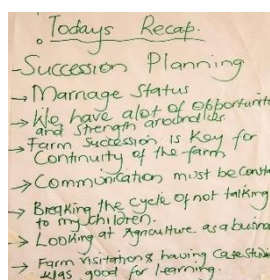 Todays Recap.
Succession Planning
→ Marriage Status
→ We have alot of opportunit
and strength around us
→ Farm Succession is Key for
Continuity of the farm
→ Communication must be Consta
→ Breaking the cycle of not talking
to my children.
→ Looking at Agriculture as a busin
→ Farm visitations & having
was good for learning.